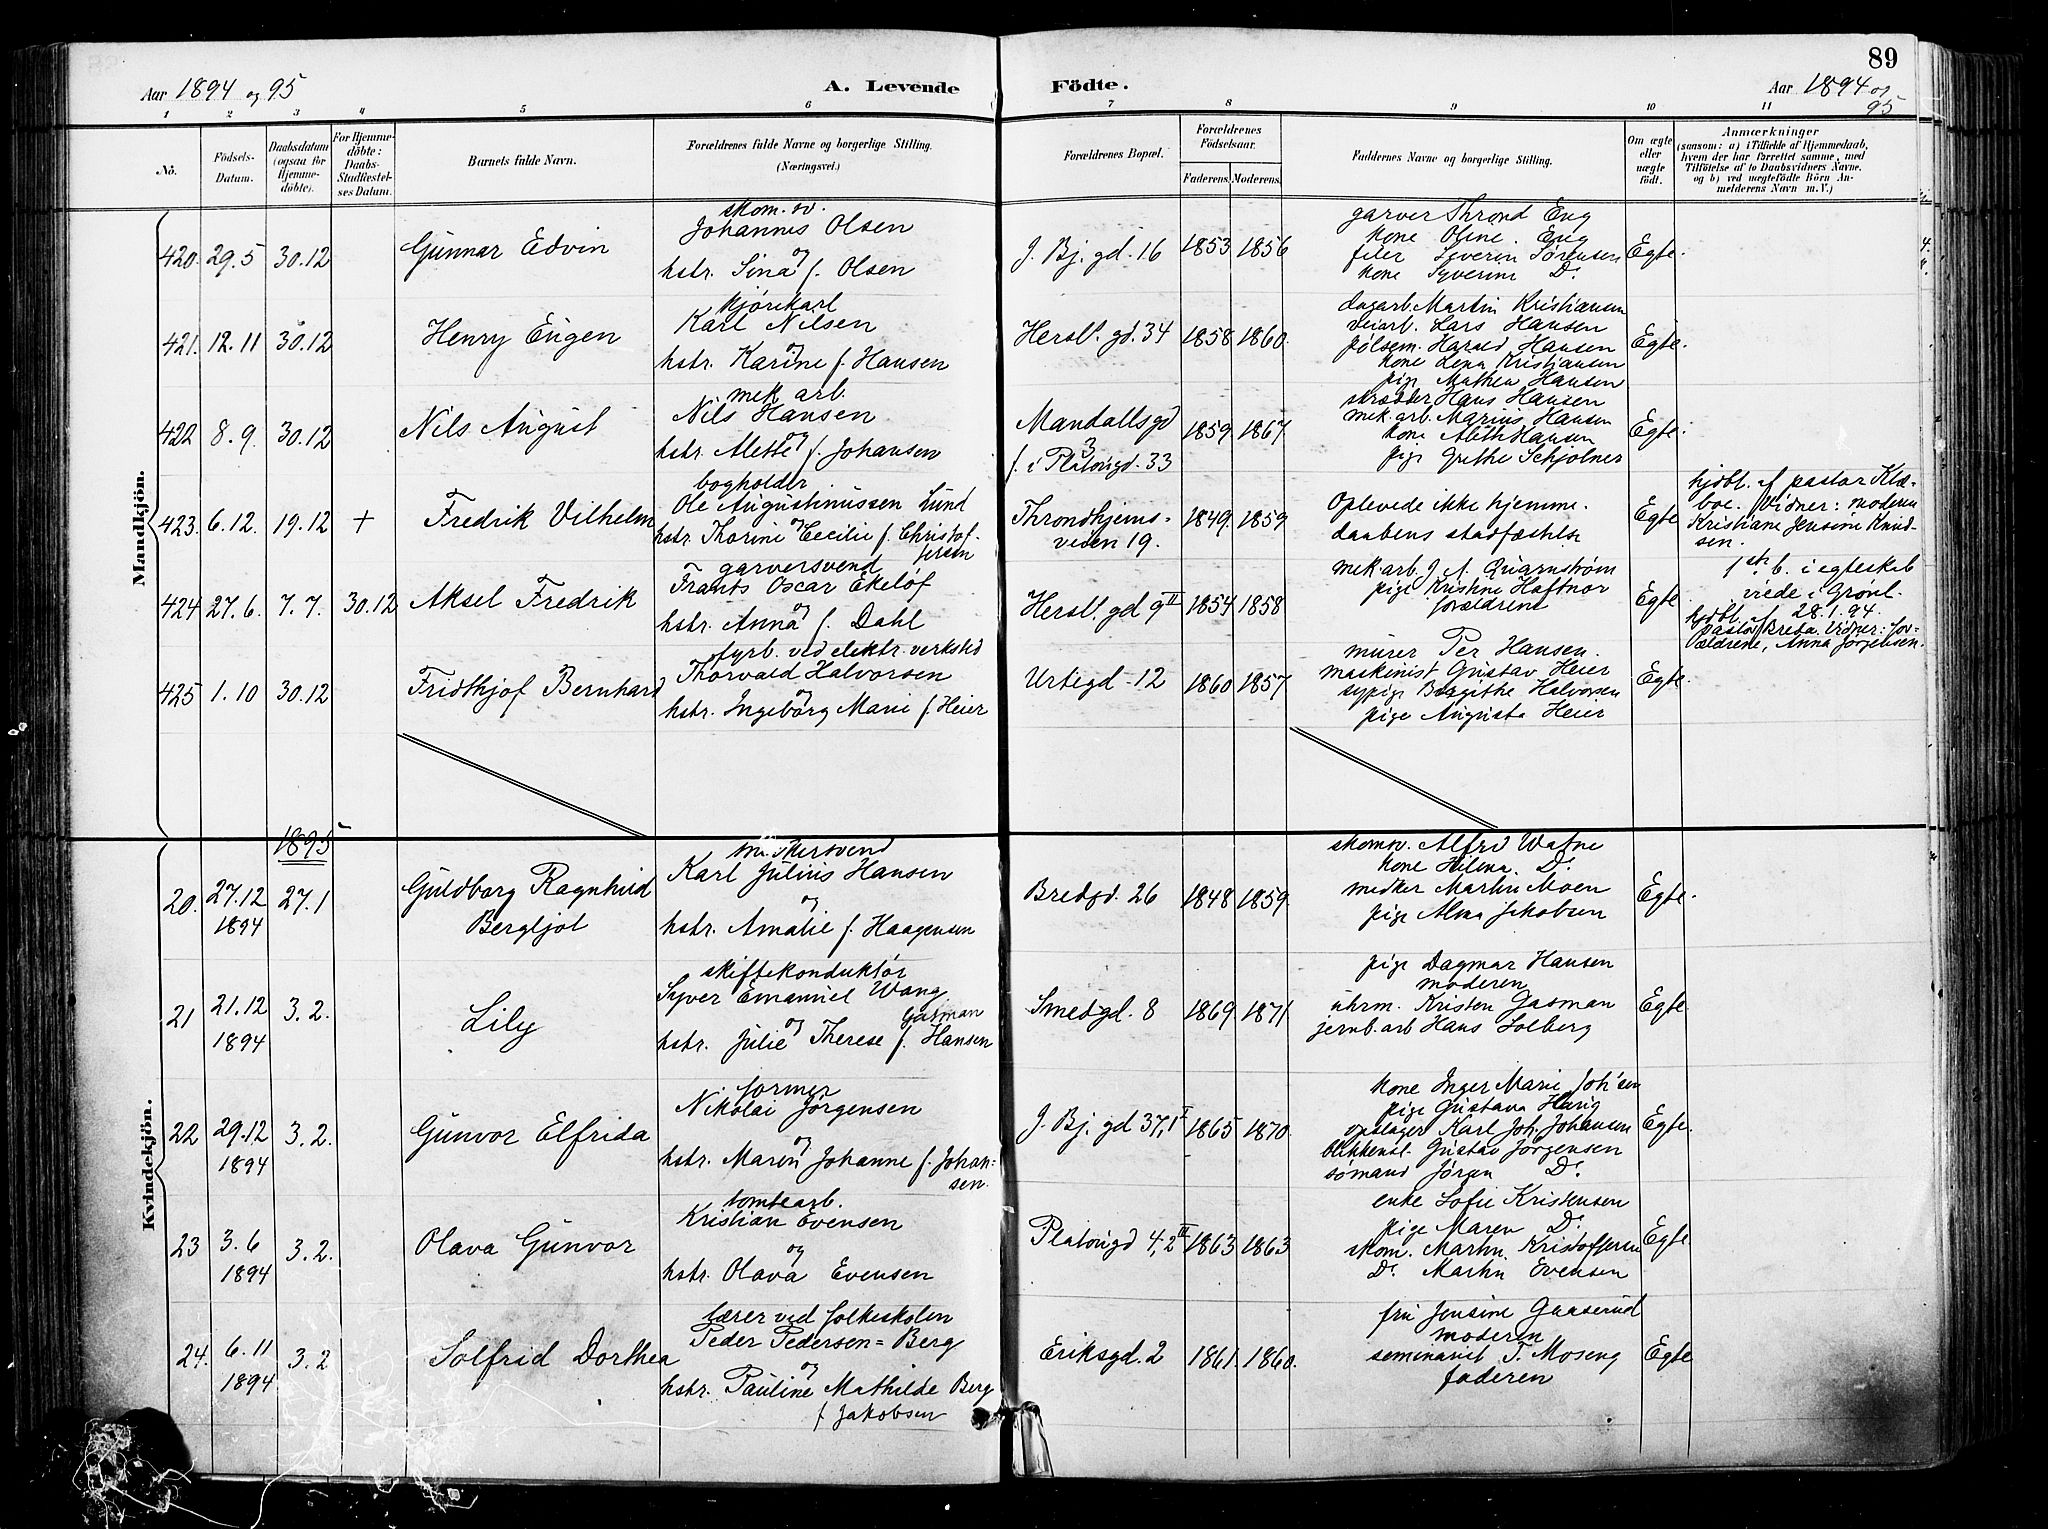 89
Aar 1894 og 95
A. Levende Födte.
Aar 1894 og 95
1 2 3 4 5 6 7 8 9 10 11
No.
Födsels-Datum.
Daabsdatum (ogsaa for Hjemmedöbte).
For Hjemmedöbte: Daabs-Stadfæstelses Datum.
Barnets fulde Navn.
Forældrenes fulde Navne og borgerlige Stilling. (Næringsvei.)
Forældrenes Bopæl.
Forældrenes Födselsaar.
Faderens. Moderens.
Faddernes Navne og borgerlige Stilling.
Om ægte eller uægte födt.
Anmærkninger
(saasom: a) i Tilfælde af Hjemmedaab, hvem der har forrettet samme, med Tilföielse af to Daabsvidners Navne, og b) ved uægtefödte Börn Anmelderens Navn m. V.)
Mandkjön.
420. 29.5 30.12 Gunnar Edvin
skom. sv.
Johannes Olsen
og
hstr. Sina f. Olsen
J. Bj. gd. 16 1853 1856
garver Thrond Eng
kone Oline Eng
filer Severin Sørensen
kone Syverine Do
Egte.
421. 12.11 30.12 Henry Eugen
kjørekarl
Karl Nilsen
og
hstr. Karine f. Hansen
Hersl. gd. 34 1858 1860.
dagarb. Martin Kristiansen
veiarb. Lars Hansen
pølsem. Harald Hansen
kone Lena Kristiansen
pige Mathea Hansen
Egte.
422 8.9. 30.12 Nils August
mek arb.
Nils Hansen
og
hstr. Alette f. Johansen
Mandallsgd 3
f. i Platougd. 33
1859 1867
skrædder Hans Hansen
mek. arb. Marius Hansen
kone Aleth Hansen
pige Grethe Schjolner
Egte.
423. 6.12. 19.12 + Fredrik Vilhelm
bogholder
Ole Augustinussen Lund
og
hstr. Thorine Cecilie f. Christoffersen
Throndhjemsveien 19.
1849. 1859
Oplevede ikke hjemmedaabens stadfæstelse
Egte
hjdbt. af pastor Klæboe. Vidner: moderen
Kristiane Jensine Knudsen.
424 27.6. 7.7. 30.12 Aksel Fredrik
garversvend
Frants Oscar Ekeløf
og
hstr. Anna f. Dahl
Hersl. gd 9 II 1854 1858
mek. arb. J. A. Quarnstrøm
pige Kristine Haftnor
forældrene
Egte
1ste b. i egteskab
viede i Grønl.
28.1.94.
hjdbt. af
pastor Breba. Vidner: Forældrene, Anna Jørgensen.
425 1.10 30.12 Fridthjof Bernhard
fyrb. ved elektr. verksted
Thorvald Halvorsen
og
hstr. Ingeborg Marie f. Heier
Urtegd. 12 1860 1857
murer Per Hansen.
maskinist Gustav Heier
sypige Birgithe Halvorsen
pige Augusta Heier
Egte.
Kvindekjön.
1895
20. 27.12 1894 27.1 Guldborg Ragnhild Bergljot
Karl Julius Hansen
og
hstr. Amalie f. Haagensen
Bredgd. 26 1848 1859.
skomv. Alfred Watne
kone Hilma Do
medker Martin Moen
pige Alma Jakobsen
Egte.
21 21.12 1894 3.2. Lily
skiftekonduktør
Syver Emanuel Wang
og Gasman
hstr. Julie Therese f. Hansen
Smedgd. 8 1869. 1871
pige Dagmar Hansen
moderen
uhrm. Kristen Gasman
jernb. arb Hans Solberg
Egte.
22 29.12 1894 3.2. Gunvor Elfrida
former
Nikolai Jørgensen
og
hstr. Maren Johanne f. Johansen.
J. Bj. gd 37, 1 I 1865 1870.
kone Inger Marie Joh'sen
pige Gustava Harig
opslager Karl Joh. Johansen
blikkensl. Gustav Jørgensen
sømand Jørgen Do
Egte.
23 3.6 1894 3.2. Olava Gunvor
tomtearb.
Kristian Evensen
og
hstr. Olava Evensen
Platougd 4, 2 II 1863 1863
enke Sofie Kristensen
pige Maren Do
skom. Martin Kristoffersen
Do. Martin Evensen
Egte
24. 6.11 1894 3.2 Solfrid Dorthea
lærer ved folkeskolen
Peder Pedersen = Berg
og
hstr. Pauline Mathilde Berg
f. Jakobsen
Eriksgd. 2 1861. 1860.
fru Jensine Gaaserud
moderen
seminarist T. Moseng
faderen
Egte